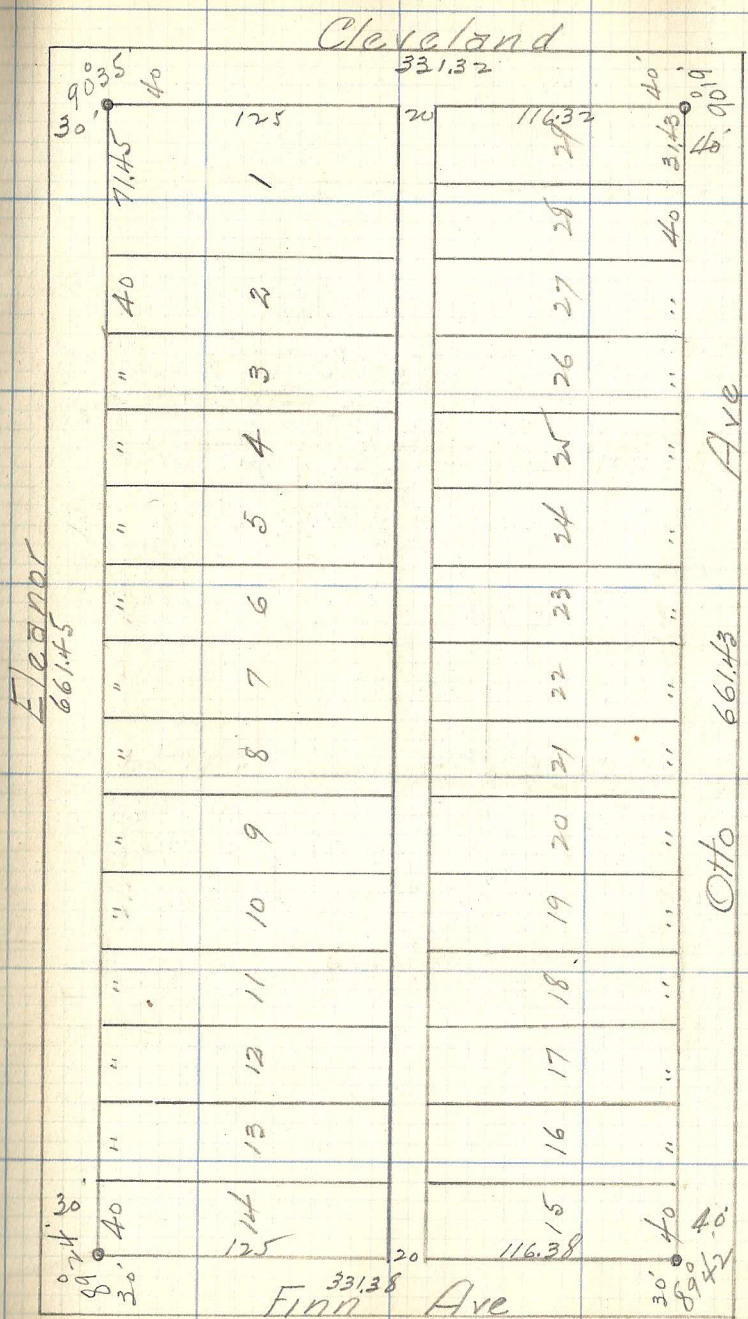 Cleveland
331.32
90°35'
40'
40'
90°19'
30'
40'
125
20
116.32
71.45
1
29
31.43
28
40
40
2
27
"
"
3
26
"
"
4
25
"
"
5
24
"
"
6
23
"
"
7
22
"
"
8
21
"
"
9
20
"
"
10
19
"
"
11
18
"
"
12
17
"
"
13
16
"
40
14
15
40
125
20
116.38
30'
89°24'
30'
40'
89°42'
30'
331.38
Finn Ave
Eleanor
661.45
Otto Ave
661.43